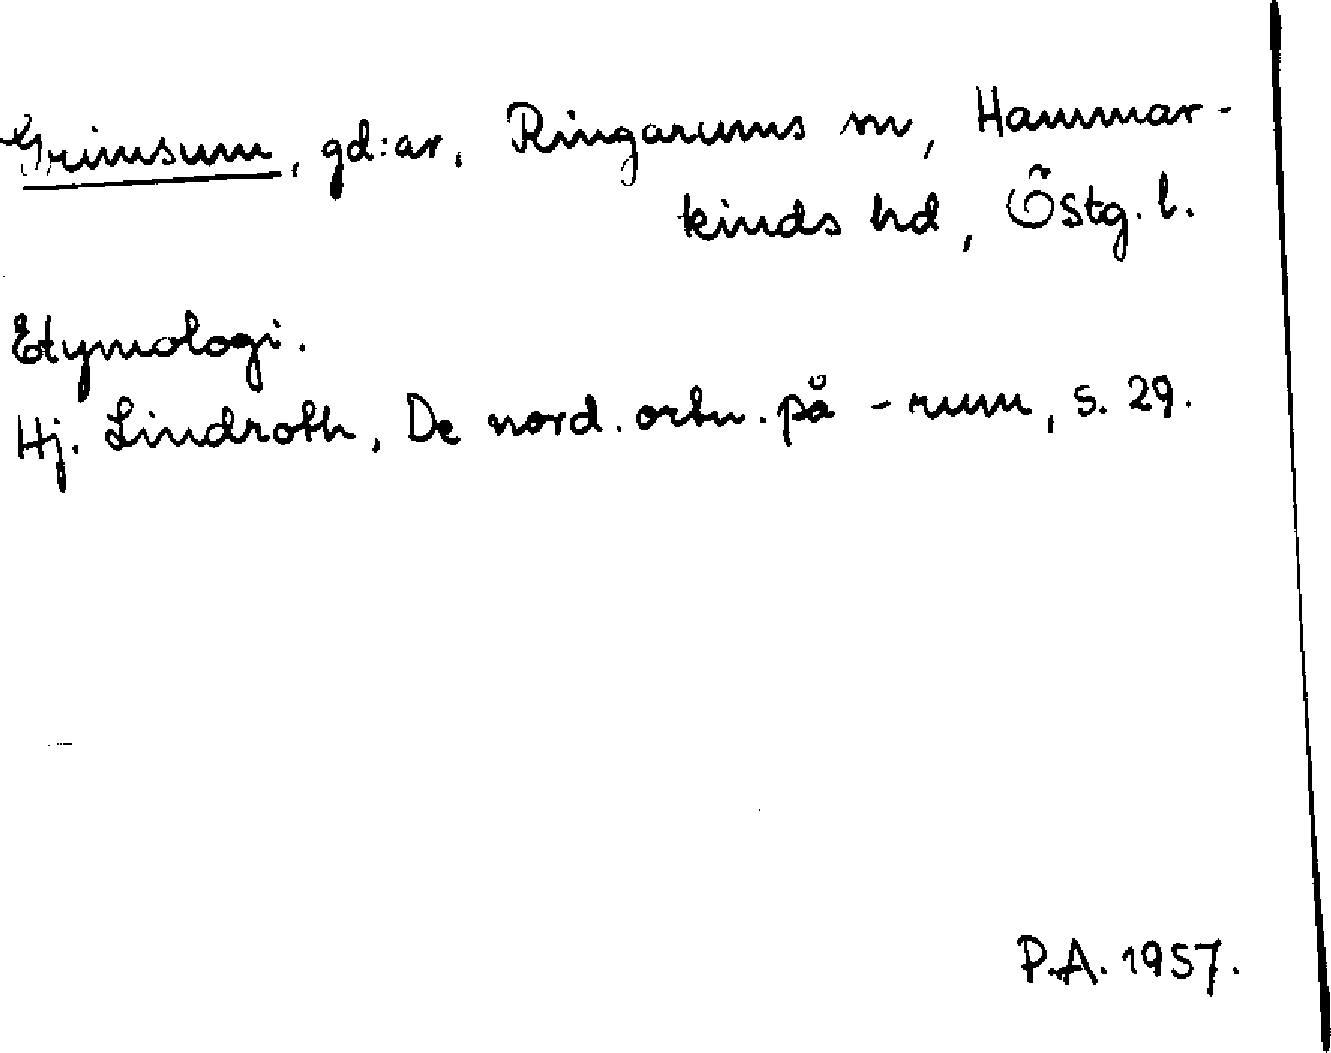 Grimsum, gd:ar, Ringarums sn, Hammar-
kinds hd, Östg. l.
Etymologi.
Hj. Lindroth, De nord. ortn. på -rum, s. 29.
P.A. 1957.